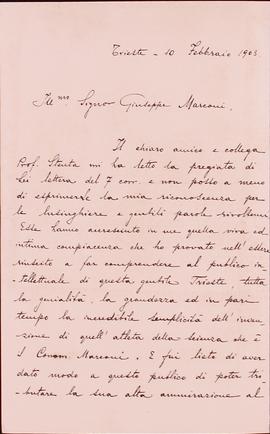 Trieste - 10 Febbraio 1903.
Ill mo Signor Giuseppe Marconi.
Il chiaro amico e collega
Prof. Stenta mi ha letto la pregiata di
Lei lettera del 7 corr. e non posso a meno
di esprimerle la mia riconoscenza per
le lusinghiere e gentili parole rivoltemi.
Esse hanno accresciuto in me quella viva ed
intima compiacenza che ho provato nell'essere
riuscito a far comprendere al pubblico in-
tellettuale di questa gentile Trieste, tutta
la genialità, la grandezza ed in pari
tempo la incredibile semplicità dell'inven-
zione di quell'atleta della scienza che è
il Comm. Marconi. E fui lieto di aver
dato modo a questo pubblico di poter tri-
butare la sua alta ammirazione al